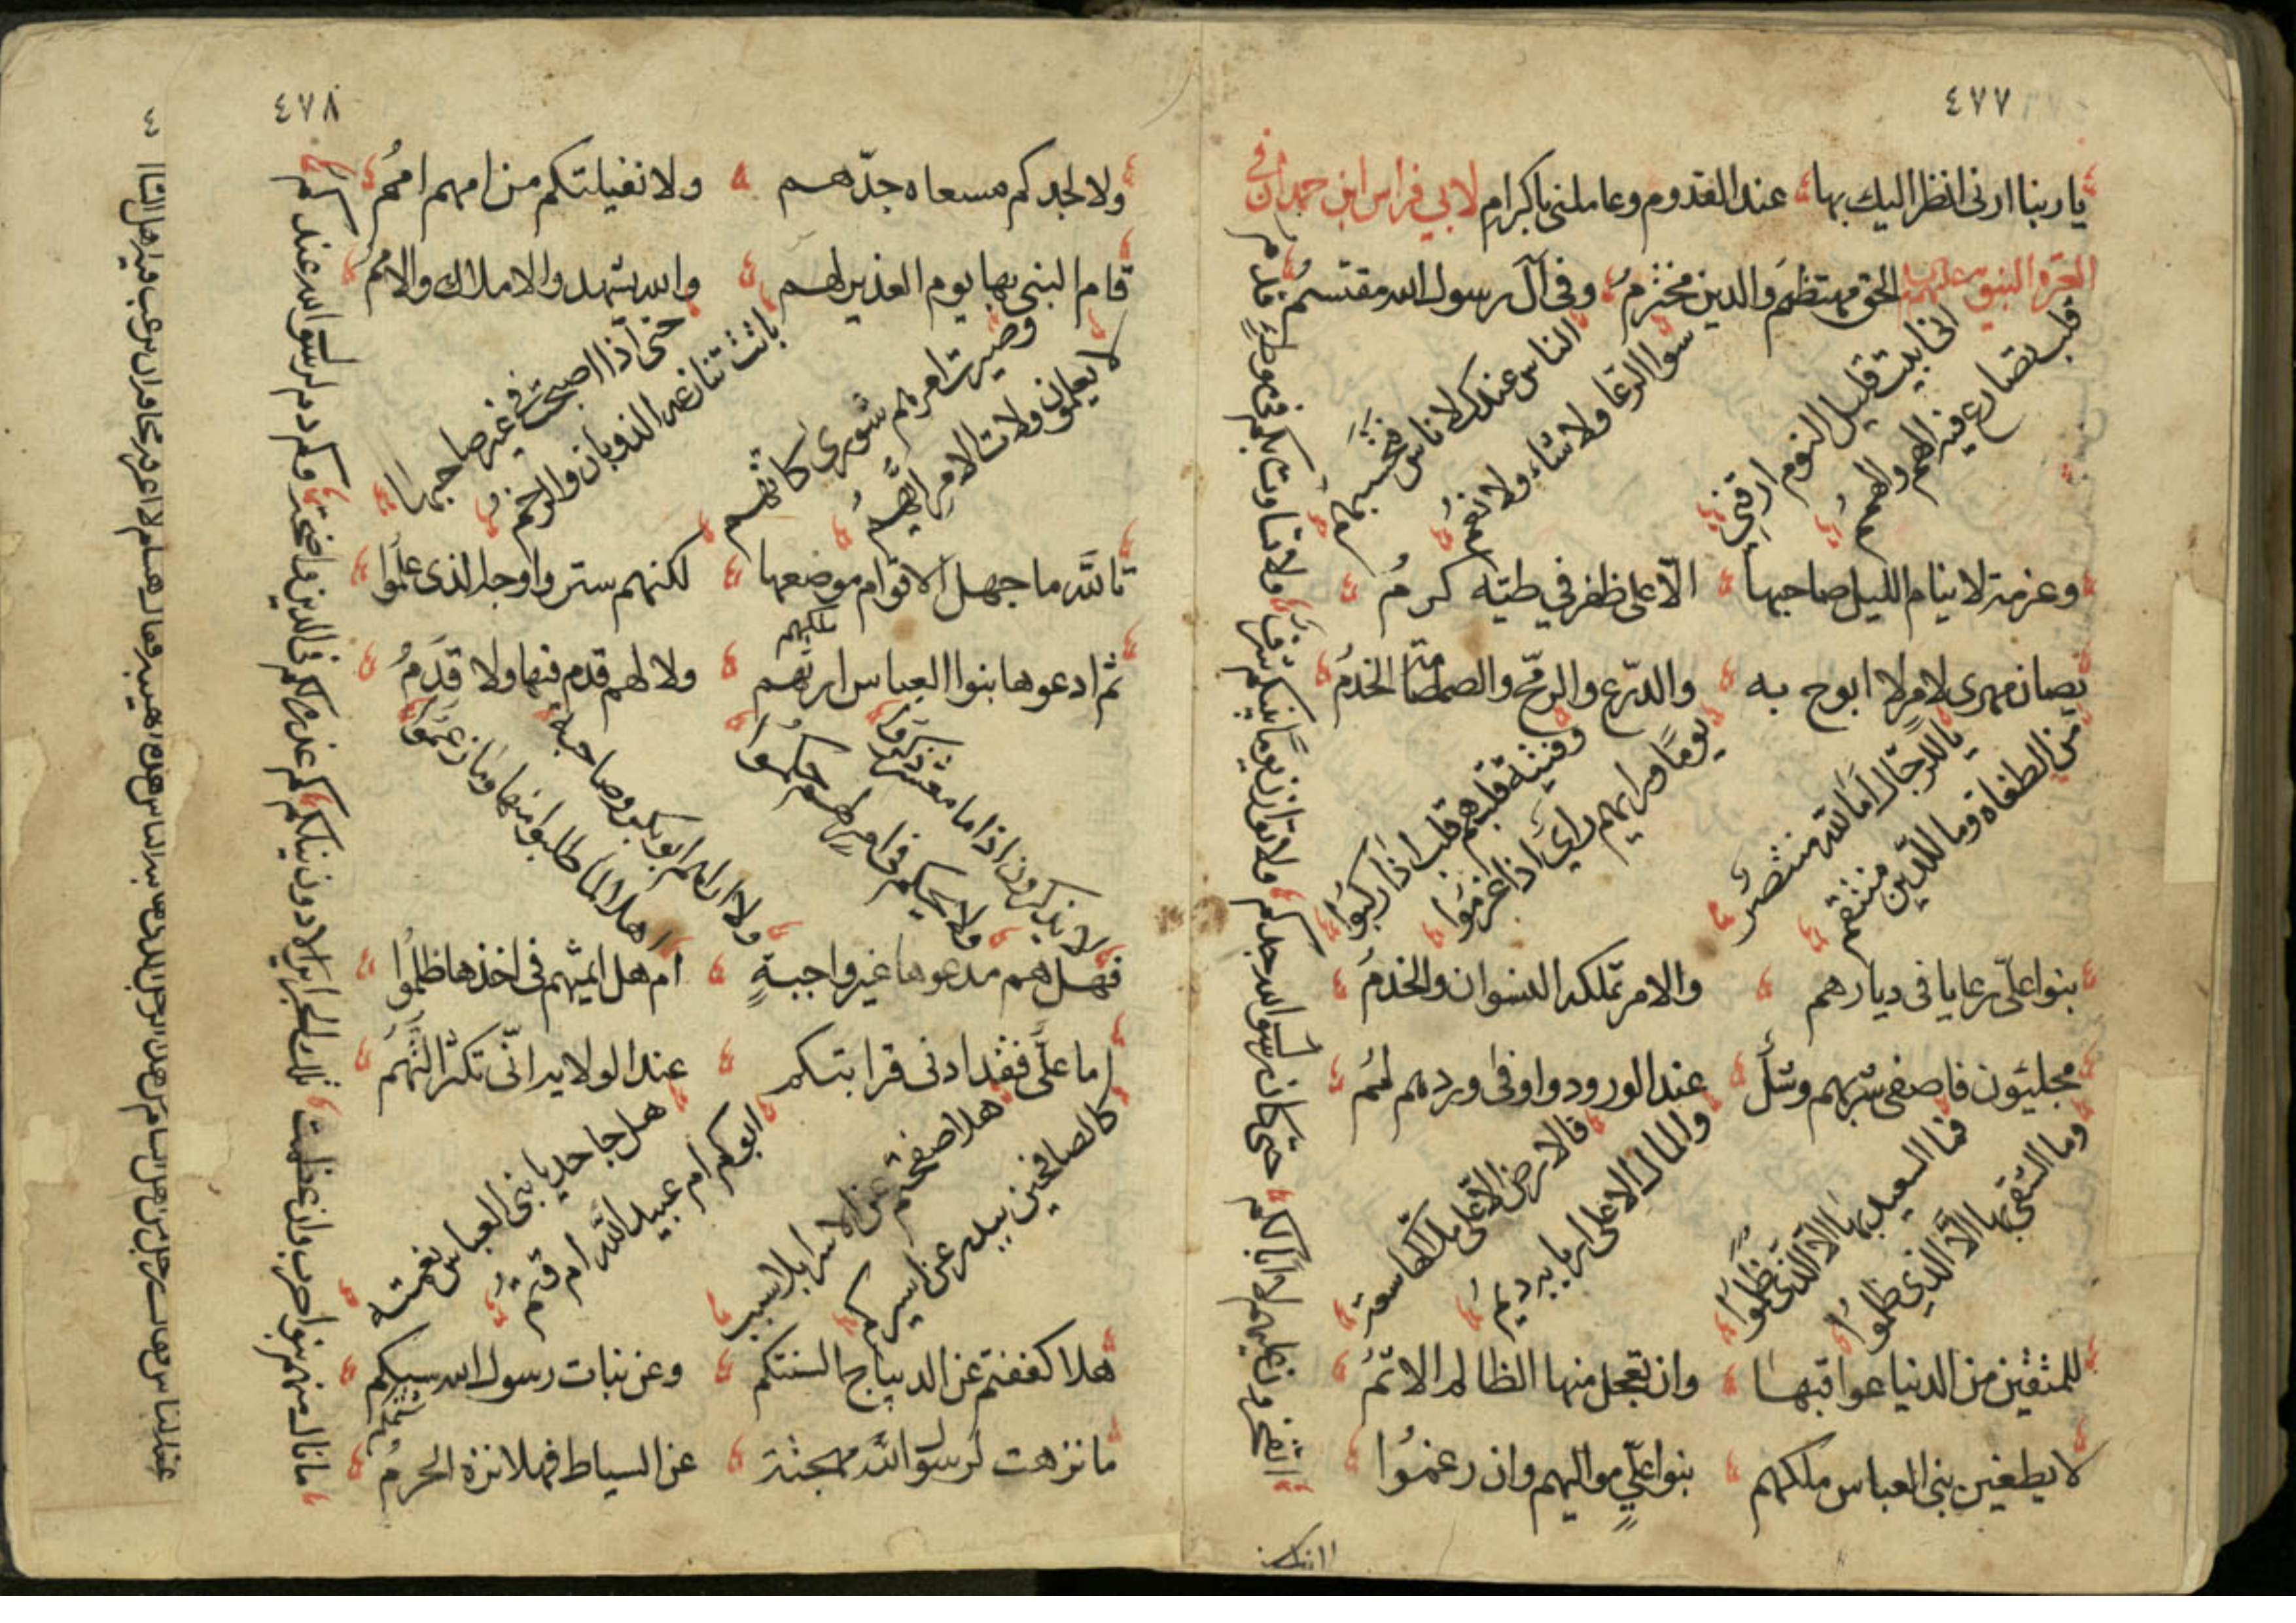 ٤٧٧
يا ربنا ارنى انظر اليك بها عند القدوم وعاملنى باكرام لابي فراس ابن حمدان في
العترة النبوية عليهم الحق مهتظم والدين مخترم وفى آل رسول الله مقتسم
والناس عندك لا ناس
سوا الرعا ولا شاء ولا نعم
انى ابيت قليل النوم ارقنى
قلب تصارع فيه الهم والهمم
وعزمة لا ينام الليل صاحبها الّا على ظفر في طيته كرم
يصان مهرى لامر لا ابوح به والدّرع والرمح والصمصامة الخدم
وفتية قلبهم قلب اذا ركبوا
يوما ورايهم راي اذا عزموا
يا للرجال اما لله منتصر
من الطغاة وما للدين منتقم
بنوا علىّ رعايا فى ديارهم والامر تملكه النسوان والخدم
محلئون فاصفى شربهم وشل عند الورود واوفى وردهم لمم
فالارض الا على ملاكها سعة
والمال الا على اربابه ديم
فما السعيد بها الا الذى ظلموا
وما الشقى بها الا الذي ظلموا
للمتقين من الدنيا عواقبها وان تعجل منها الظالم الاثم
لا يطغين بنى العباس ملكهم بنوا علىّ مواليهم وان رغموا
اتفخرون عليهم لا ابا لكم حتى كان رسول الله جدكم
ولا توازن يوما بينكم شرف ولا تساوت بكم فى موطن قدم
٤٧٨
ولا لجدكم مسعاه جدّهم ولا نفيلتكم من امهم امم
قام النبى بها يوم الغدير لهم والله يشهد والاملاك والامم
حتى اذا اصبحت في غير صاحبها
باتت تنازعها الذوبان والرخم
وصيرت امرهم شورى كانهم
لا يعلمون ولات الامر ايهم
تالله ما جهل الاقوام موضعها لكنهم ستروا وجه الذى علموا
ثم ادعوها بنوا العباس ارثهم ولا لهم قدم فيها ولا قدم
لا يذكرون اذا ما معشر ذكروا
ولا يحكم فى امر لهم حكموا
ولا راهم ابو بكر وصاحبه
اهلا لما طلبوا منها وما زعموا
فهل هم مدعوها غير واجبة ام هل ايمتهم فى اخذها ظلموا
اما علىّ فقد ادنى قرابتكم عند الولايه انّ تكثر التهم
هل جاحد يا بنى العباس نعمته
ابوكم ام عبيد الله ام قثم
هلا صفحتم عن الاسرا بلا سبب
كالصافحين ببدر عن اسيركم
هلا كففتم عن الديباج السنتكم وعن بنات رسول الله سبكم
ما نزهت لرسول الله مهجته عن السياط فهلا نزه الحرم
ما نال منهم بنوا حرب وان عظمت تلك الجراير الا دون نيلكم
كم غدرة لكم فى الدين واضحة وكم دم لرسول الله عندكم